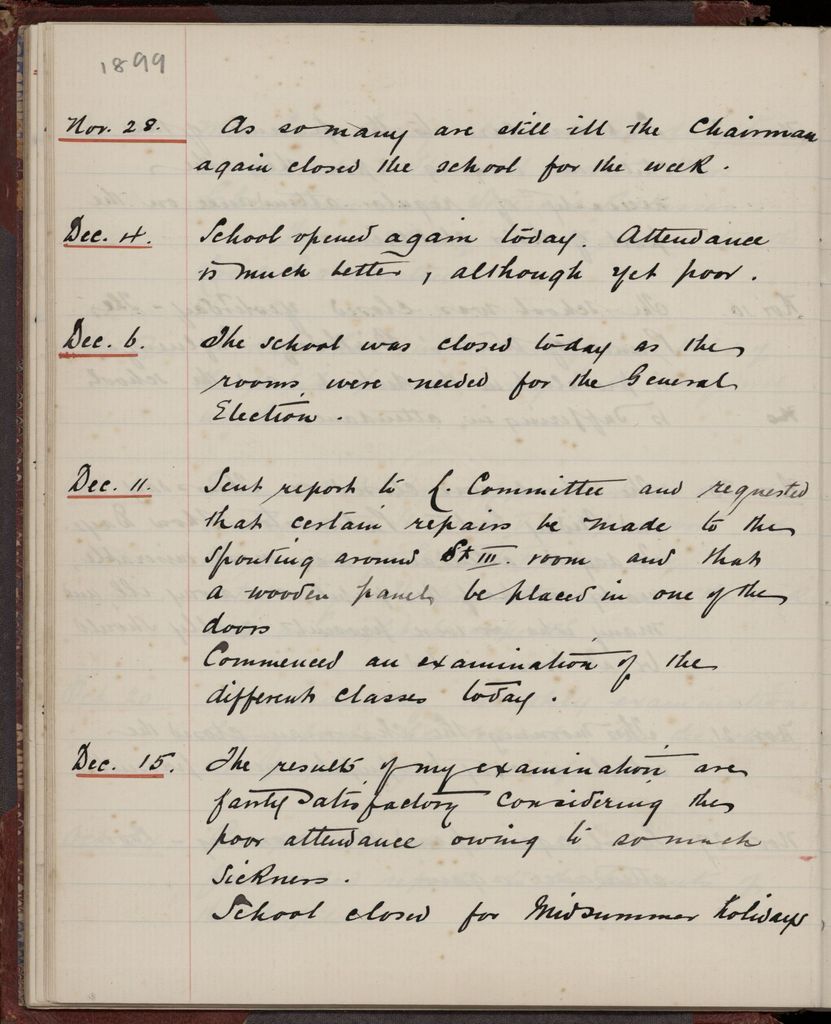 1899
Nov. 28. As so many are still ill the Chairman
again closed the school for the week.
Dec. 4. School opened again today. Attendance
is much better, although yet poor.
Dec. 6. The school was closed today as the
rooms were needed for the General
Election.
Dec. 11. Sent report to S. Committee and requested
that certain repairs be made to the
spouting around St III. room and that
a wooden panel be placed in one of the
doors
Commenced an examination of the
different classes today.
Dec. 15. The results of my examination are
fairly satisfactory considering the
poor attendance owing to so much
sickness.
School closed for Midsummer Holidays